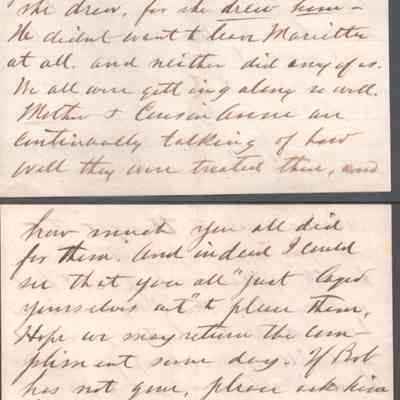 she drew, for she drew home -
He didn't want to leave Marietta
at all. and neither did any of us.
We all were getting along so well.
Mother & Cousin Anne are
Continually talking of how
well they were treated there, and
how much you all did
for them. And indeed I could
see that you all "just
yourselves out" to please them,
Hope we may return the com-
pliment some day. If Bob
has not gone, please ask him